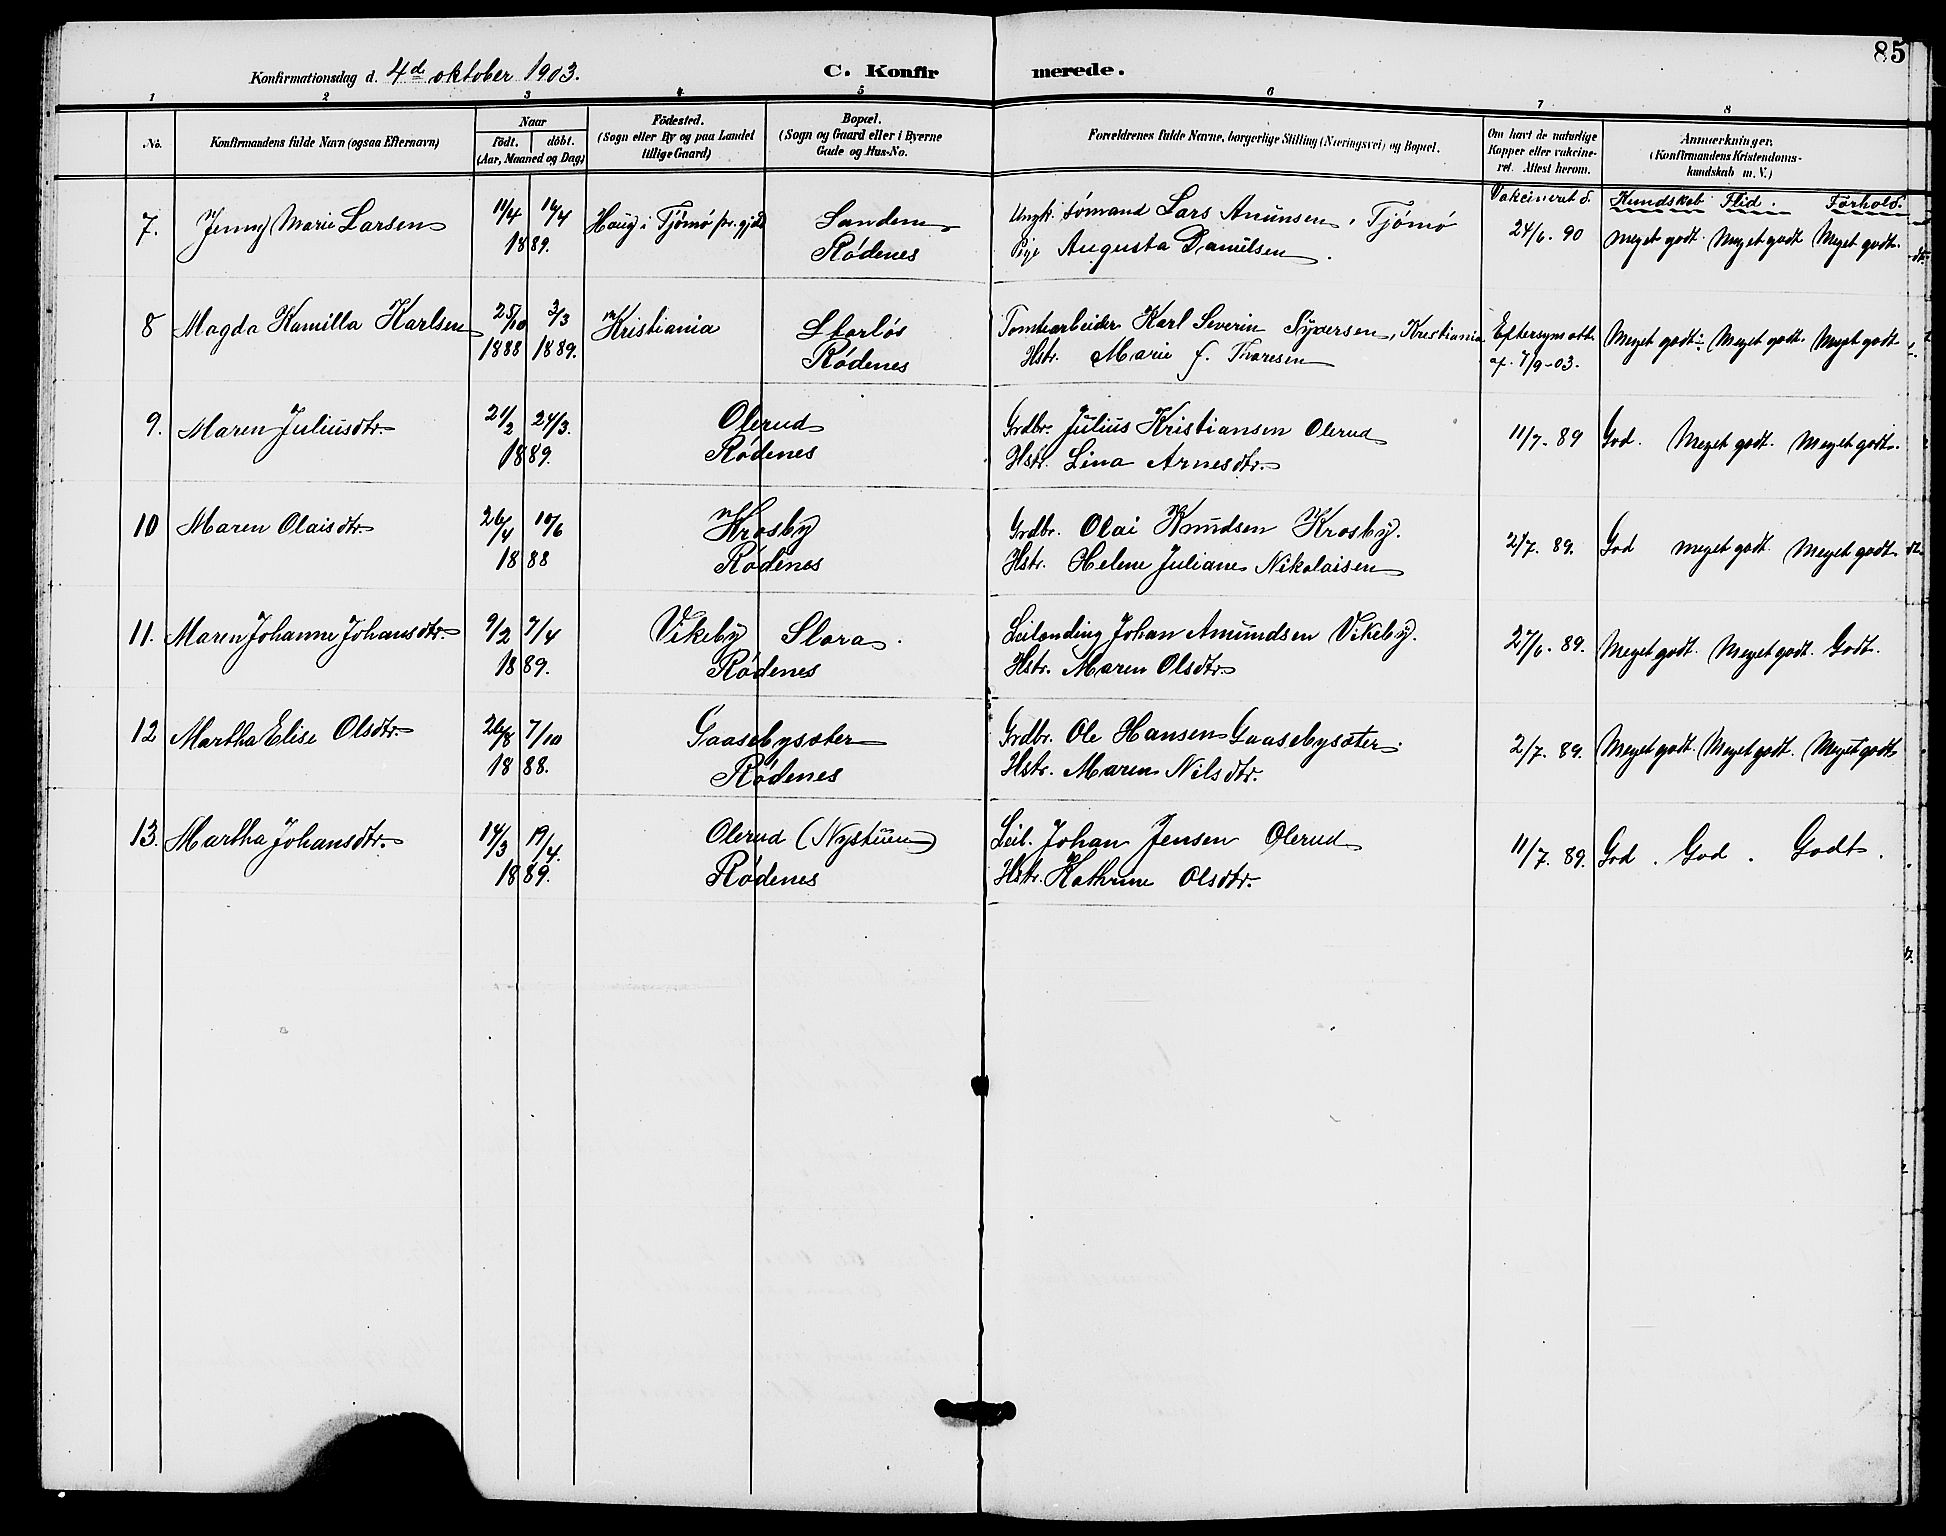 85
Konfirmationsdag d. 4de oktober 1903. C. Konfir merede.
1 2 3 4 5 6 7 8
No. Konfirmandens fulde Navn (ogsaa Efternavn) Naar födt. döbt. (Aar, Maaned og Dag) Födested. (Sogn eller By og paa Landet tillige Gaard) Bopæl. (Sogn og Gaard eller i Byerne Gade og Hus-No. Forældrenes fulde Navne, borgerlige Stilling (Næringsvei) og Bopæl. Om havt de naturlige Kopper eller vakcineret. Attest herom. Anmærkninger. (Konfirmandens Kristendomskundskab m. V.)
Vakcineret d. Kundskab Flid. Forhold.
7. Jenny Marie Larsen 11/4 16/4 Haug i Tjömö pr.gjld Sanden Ungk. sömand Lars Anunsen, Tjömö 24/6. 90 Meget godt. Meget godt Meget godt.
1889. Rödenes Pige Augusta Danielsen.
8 Magda Kamilla Karlsen 25/10 3/3 Kristiania Storlös Tomtearbeider Karl Severin Syversen, Kristiania Eftersyn att. Meget godt. Meget godt. Meget godt
1888 1889. Rödenes Hstr. Marie f. Thoresen af 7/9-03.
9. Maren Juliusdtr. 21/2 24/3. Olerud Grdbr. Julius Kristiansen Olerud 11/7. 89 God. Meget godt. Meget godt.
1889. Rödenes Hstr. Lina Arnesdtr.
10 Maren Olaisdtr. 26/4 10/6 Krosby Grdbr. Olai Knudsen Krosby. 2/7. 89. God Meget godt. Meget godt.
1888 Rödenes Hstr. Helene Juliane Nikolaisen
11. Maren Johanne Johansdtr. 9/2 7/4 Vikeby Slora. Leilending Johan Amundsen Vikeby. 27/6. 89. Meget godt. Meget godt. Godt.
1889. Rödenes Hstr. Maren Olsdtr.
12 Martha Elise Olsdtr. 26/8 7/10 Gaasebysæter Grdbr. Ole Hansen Gaasebysæter. 2/7. 89. Meget godt. Meget godt. Meget godt
1888. Rödenes Hstr. Maren Nilsdtr.
13. Martha Johansdtr. 14/3 19/4. Olerud (Nystuen) Leil. Johan Jensen Olerud 11/7. 89. God. God. Godt.
1889. Rödenes Hstr. Kathrine Olsdtr.